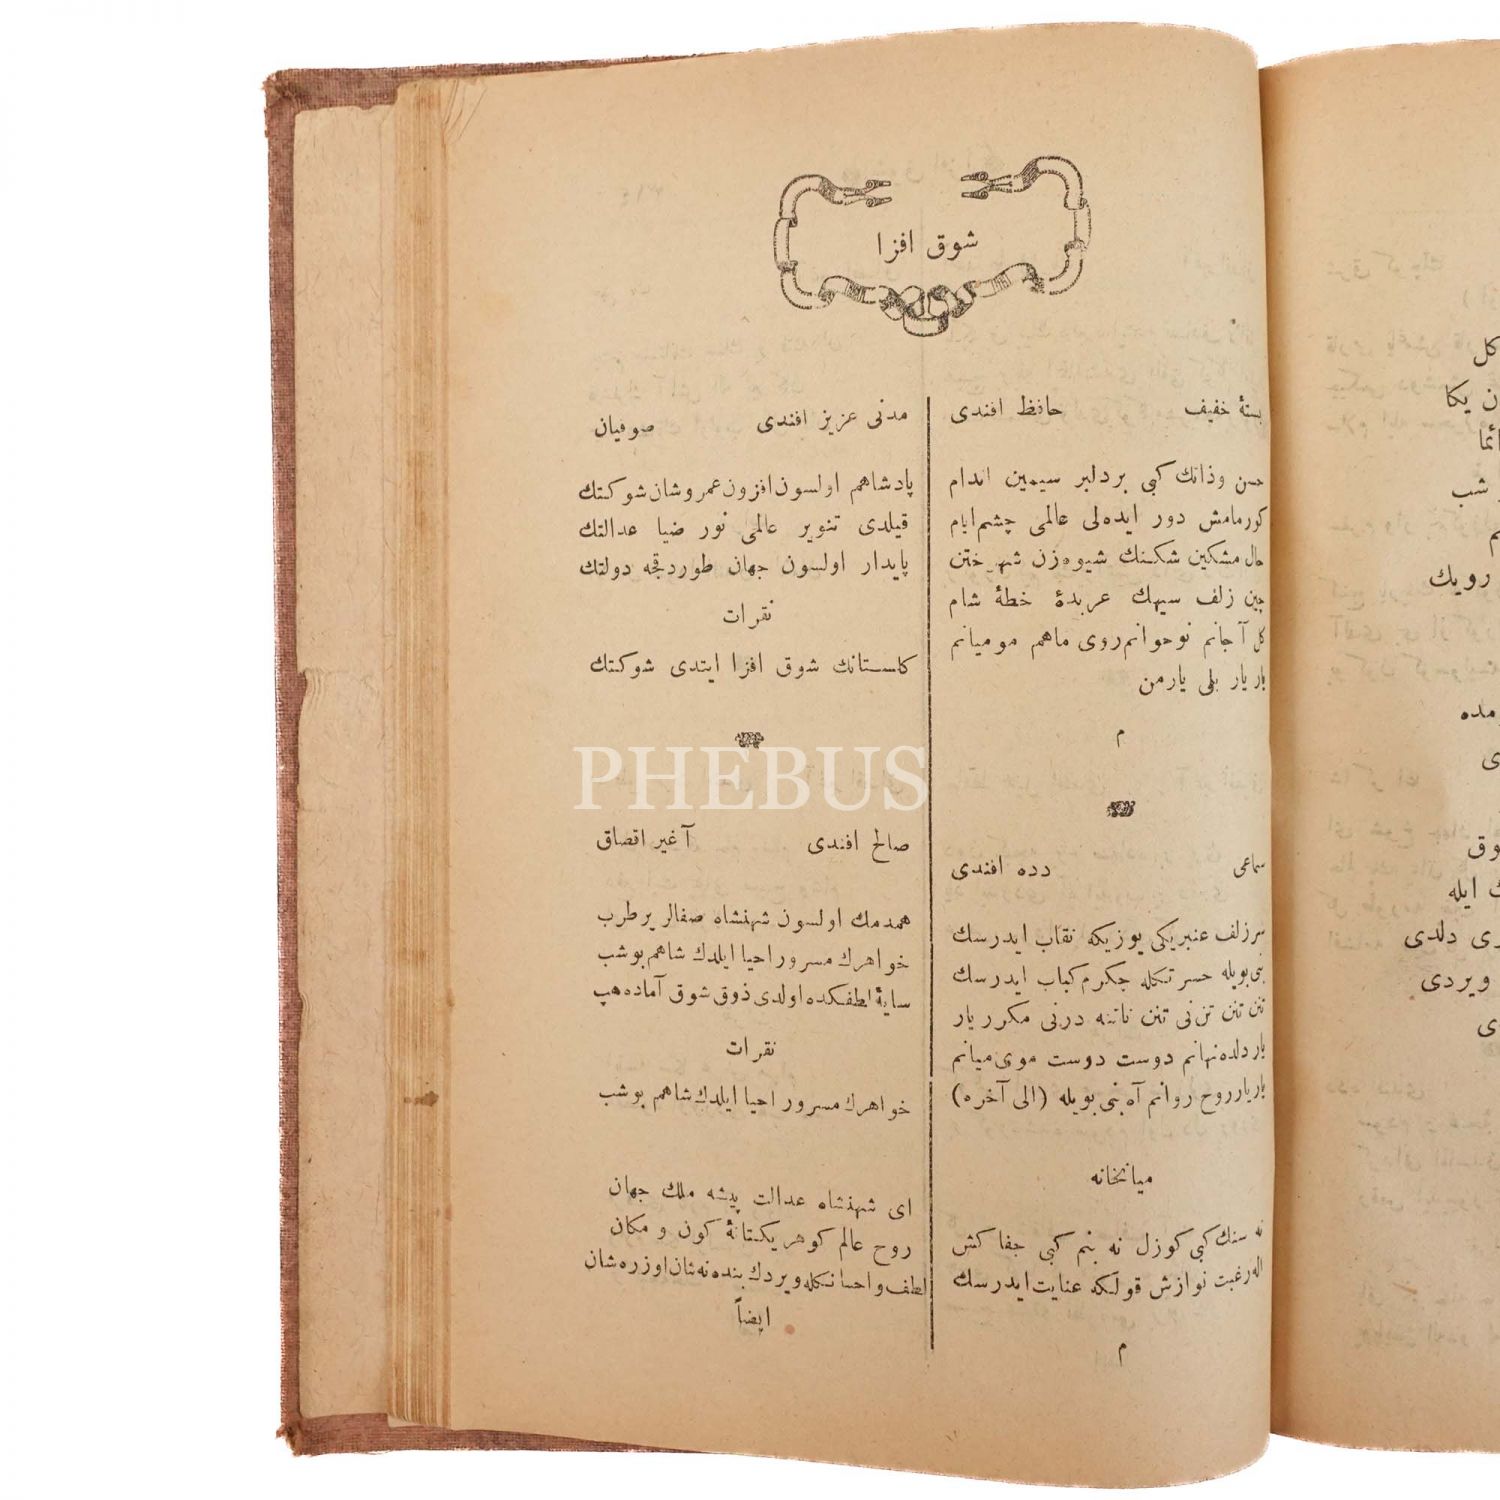 شوق افزا
بستهٔ خفیف حافظ افندی
حسن وذاتك كبی بردلبر سیمین اندام
كورمامش دور ایده‌لی عالمی چشم ایام
خال مشكین شكنك شیوه‌زن شهر ختن
چین زلف سیهك عربدهٔ خطهٔ شام
كل آ جانم نوجوانم روی ماهم مومیانم
یار یار بلی یارمن
م
سماعی دده افندی
سرزلف عنبریكی یوزیكه نقاب ایدرسك
بنی بویله حسرتكله جكرم كباب ایدرسك
تنن تنن تن نی تنن ناتنه درنی مكرر یار
یار دلده نهانم دوست دوست موی میانم
یاریار روح روانم آه بنی بویله (الی آخره)
میانخانه
نه سنك كبی كوزل نه بنم كبی جفا كش
رغبت نوازش قولكه عنایت ایدرسك
م
مدنی عزیز افندی صوفیان
پادشاهم اولسون افزون عمروشان شوكتك
قیلدی تنویر عالمی نور ضیا عدالتك
پایدار اولسون جهان طوردقجه دولتك
نقرات
كلستانك شوق افزا ایتدی شوكتك
PHEBUS
صالح افندی آغیر اقصاق
همدمك اولسون شهنشاه صفالر پرطرب
خواهرك مسرور احیا ایلدك شاهم بوشب
سایهٔ لطفكده اولدی ذوق شوق آماده هپ
نقرات
خواهرك مسرور احیا ایلدك شاهم بوشب
ای شهنشاه عدالت پیشه ملك جهان
روح عالم كوهر یكتانهٔ كون و مكان
لطف واحسانكله ویردك بنده نه‌ئان اوزره شان
ایضاً
كل
شب
رویك
ایله
دلدی
ویردی